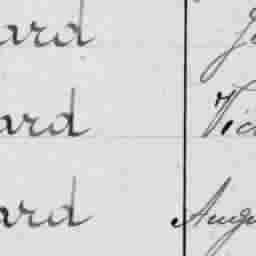 ard
ard Vic
ard Augu